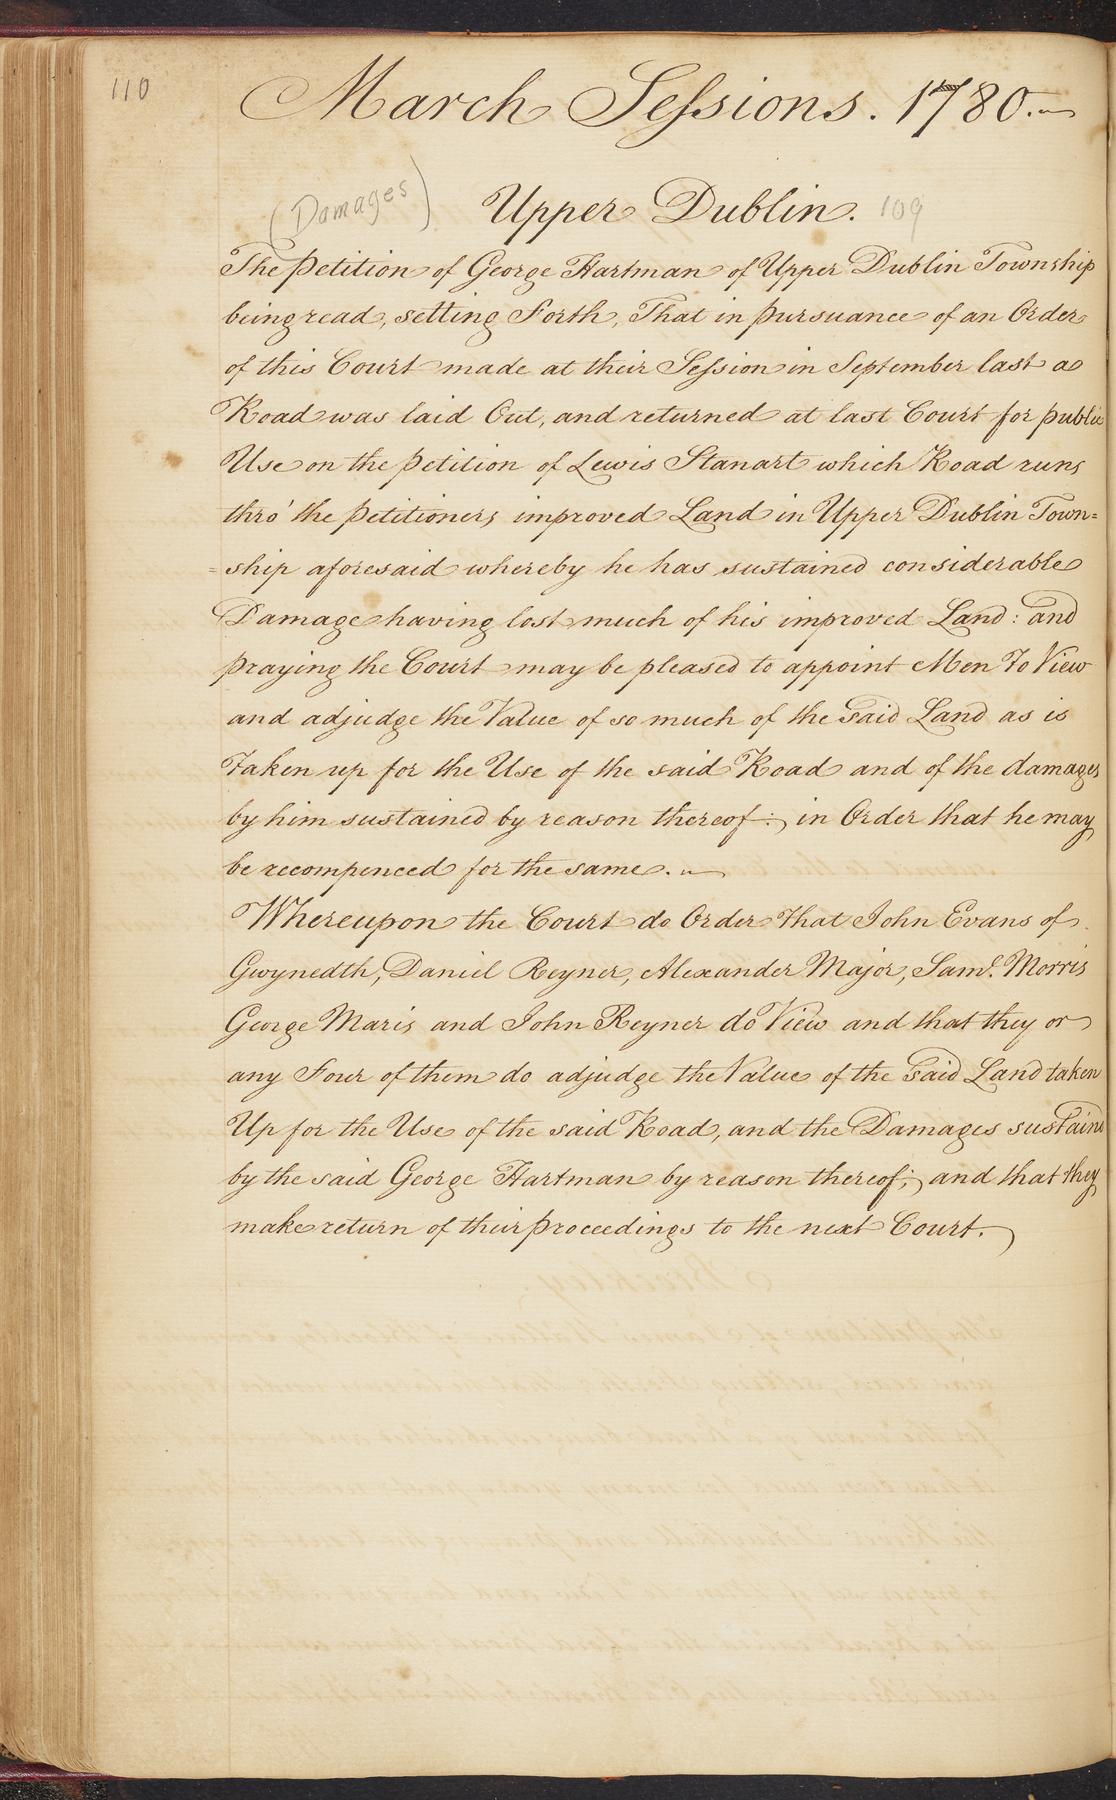 110
March Sessions. 1780.
(Damages)
Upper Dublin. 109
The Petition of George Hartman of Upper Dublin Township
being read, setting Forth, That in pursuance of an Order
of this Court made at their Session in September last a
Road was laid Out, and returned at last Court for public
Use on the petition of Lewis Stanart which Road runs
thro' the petitioners improved Land in Upper Dublin Town=
=ship aforesaid whereby he has sustained considerable
Damage having lost much of his improved Land: and
praying the Court may be pleased to appoint Men To View
and adjudge the Value of so much of the said Land as is
Taken up for the Use of the said Road and of the damages
by him sustained by reason thereof: in Order that he may
be recompenced for the same.
Whereupon the Court do Order that John Evans of
Gwynedth, Daniel Reyner, Alexander Major, Saml. Morris
George Maris and John Reyner do View and that they or
any Four of them do adjudge the Value of the said Land taken
Up for the Use of the said Road, and the Damages sustaind
by the said George Hartman by reason thereof; and that they
make return of their proceedings to the next Court.